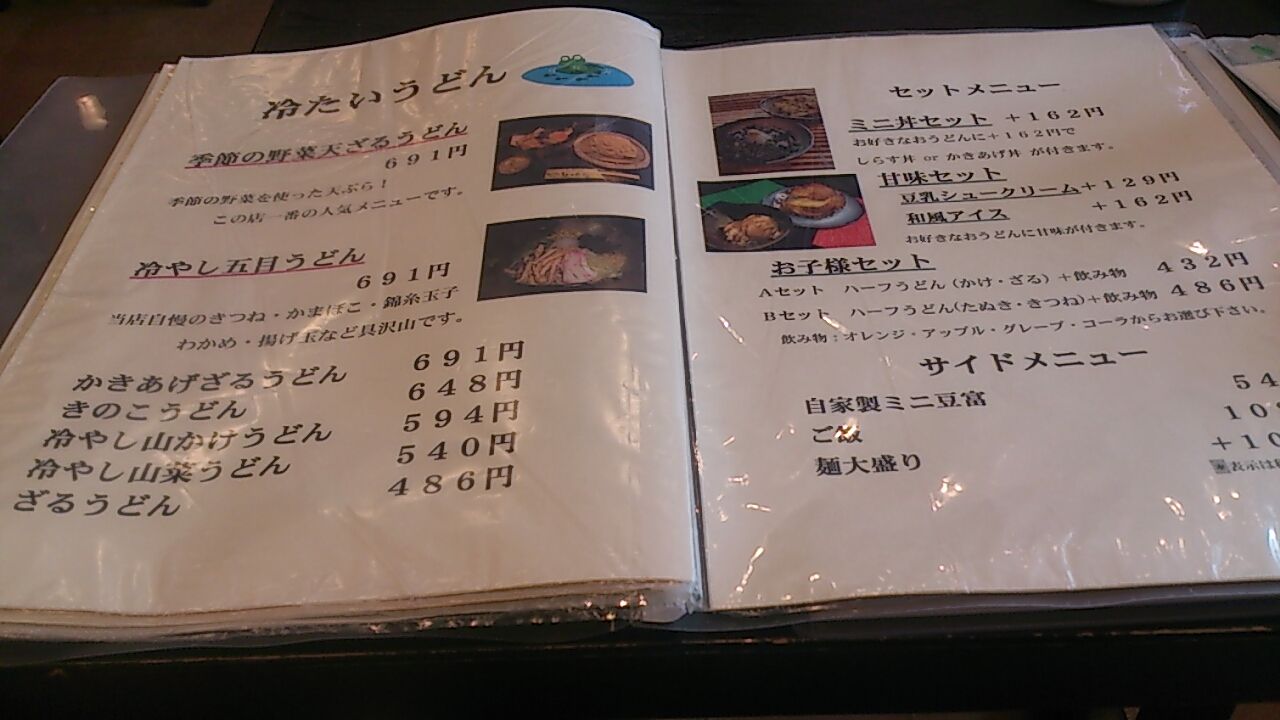 冷たいうどん
季節の野菜天ざるうどん
６９１円
季節の野菜を使った天ぷら！
この店一番の人気メニューです。
冷やし五目うどん
６９１円
当店自慢のきつね・かまぼこ・錦糸玉子
わかめ・揚げ玉など具沢山です。
かきあげざるうどん ６９１円
きのこうどん ６４８円
冷やし山かけうどん ５９４円
冷やし山菜うどん ５４０円
ざるうどん ４８６円
セットメニュー
ミニ丼セット ＋１６２円
お好きなおうどんに＋１６２円で
しらす丼 or かきあげ丼 が付きます。
甘味セット
豆乳シュークリーム＋１２９円
和風アイス ＋１６２円
お好きなおうどんに甘味が付きます。
お子様セット
Ａセット ハーフうどん（かけ・ざる）＋飲み物 ４３２円
Ｂセット ハーフうどん（たぬき・きつね）＋飲み物 ４８６円
飲み物：オレンジ・アップル・グレープ・コーラからお選び下さい。
サイドメニュー
自家製ミニ豆富 ５４
ご飯 １０
麺大盛り ＋１０
表示は